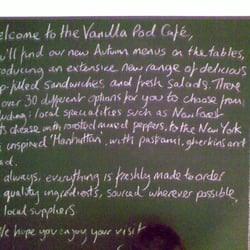 elcome to the Vanilla Pod Café,
'll find our new Autumn menus on the tables,
oducing an extensive new range of delicious
p-filled sandwiches and fresh salads. There
over 30 different options for you to choose from
luding local specialities such as New Forest
ts cheese with roasted mixed peppers, to the New York
inspired 'Manhattan', with pastrami, gherkins and
always, everything is freshly made to order
quality ingredients, sourced wherever possible,
local suppliers
We hope you enjoy your visit